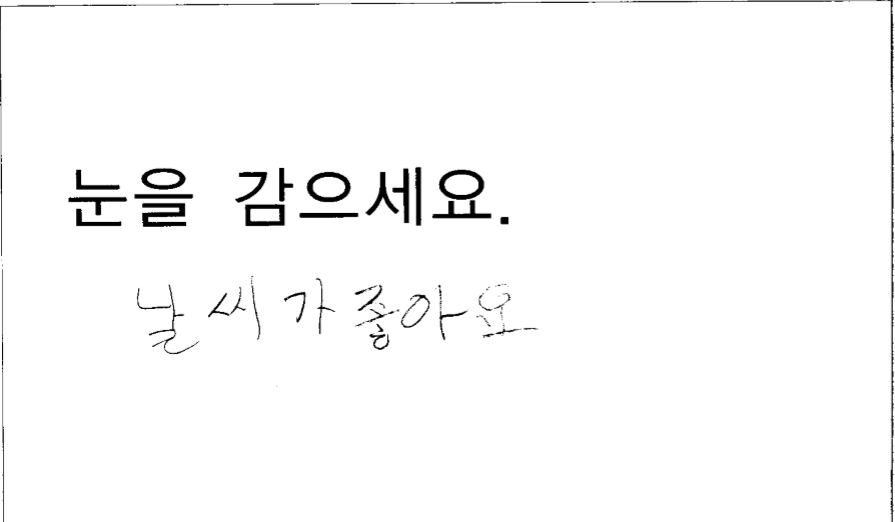 눈을 감으세요.
날씨가좋아요